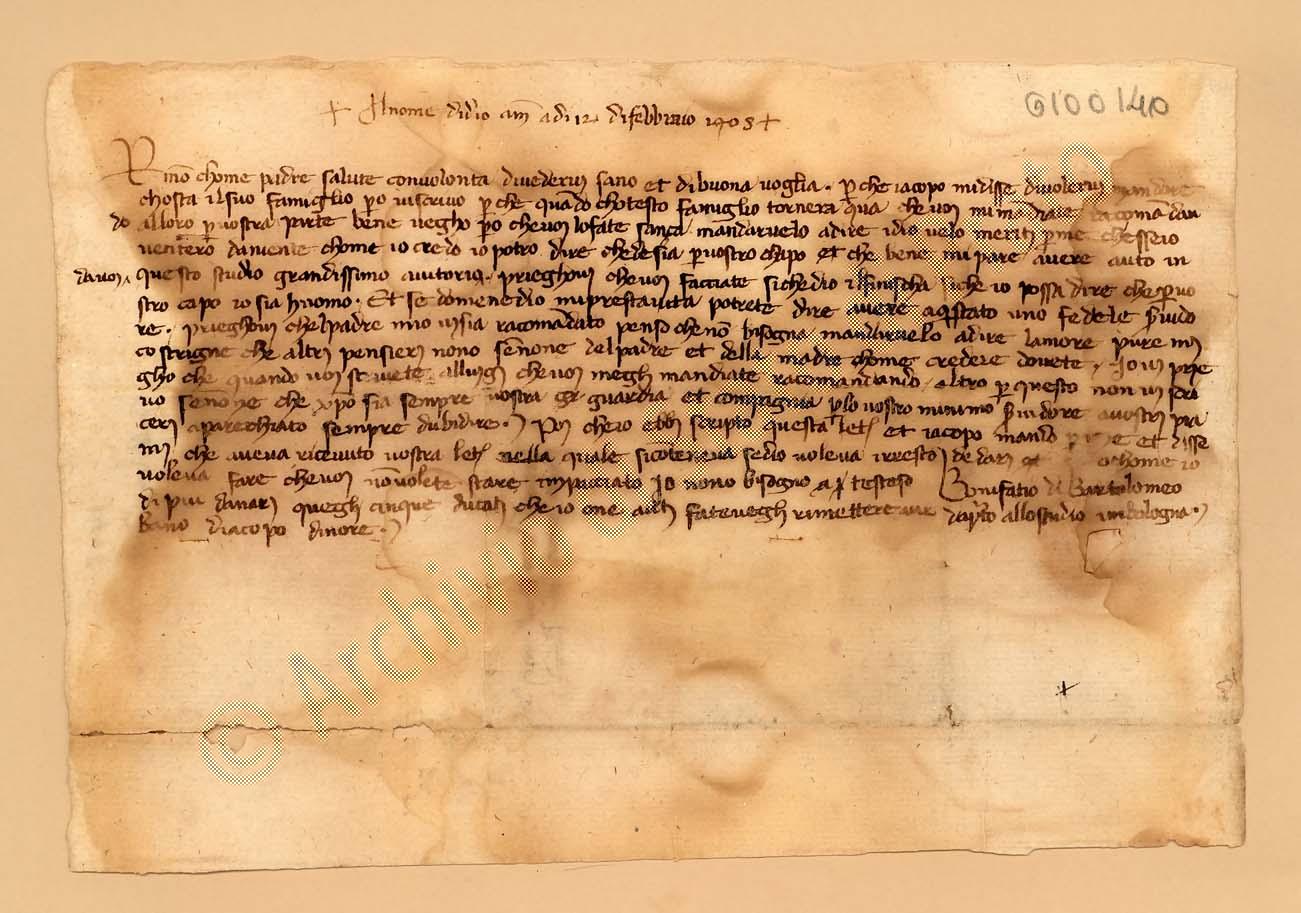 6100140
+ Al nome didio am adi 12 di febbraio 1403 +
R mō chome padre salute con volonta di vedervi sano et di buona voglia. p che iacopo mi disse di volervi mandare
chosta il suo famiglio po vi scrivo p che quādo chotesto famiglio tornera qua che voi mi mādiate racomādan
do alloro p vostra parte bene vegho po che voi lo fate sanza mandarvelo a dire idio velo meriti p me chesseio
ventero da niente chome io credo io potro dire che de sia p vostro chapo et che bene mi pare avere auto in
da voi
questo studio grandissimo aiutorio. prieghovi che voi facciate si che dio che io possa dire che p vo
stro capo io sia huomo. Et se domenedio mi presta vita potrete dire avere aqstato uno fedele s vido
re. prieghovi chel padre mio vi sia racomādato penso che nō bisogna mandarvelo a dire lamore pure mi
costrigne che altri pensieri nono senone del padre et della madre chome credere dovete. Io vi prie
gho che quando voi scrivete allungi che voi megli mandiate racomandando. altro p questo non vi scri
vo senone che xpo sia sempre vostra guardia et compagnia plo vostro minimo s vidore a vostri pia
ceri aparechiato sempre dubidire. Poi cheio ebbi scripto questa let et iacopo mando p me et disse
mi che aveva ricevuto vostra let nella quale si cōteneva sedio voleva il resto de dari chome io
voleva fare che voi nō volete stare impacciato Io nono bisogno a p testeso Bonifatio di Bartolomeo
di piu danari quegli cinque ducati che io one auti fategli rimettere dap̄to allo studio in bologna.
bano diacopo dinore.
© Archivio di